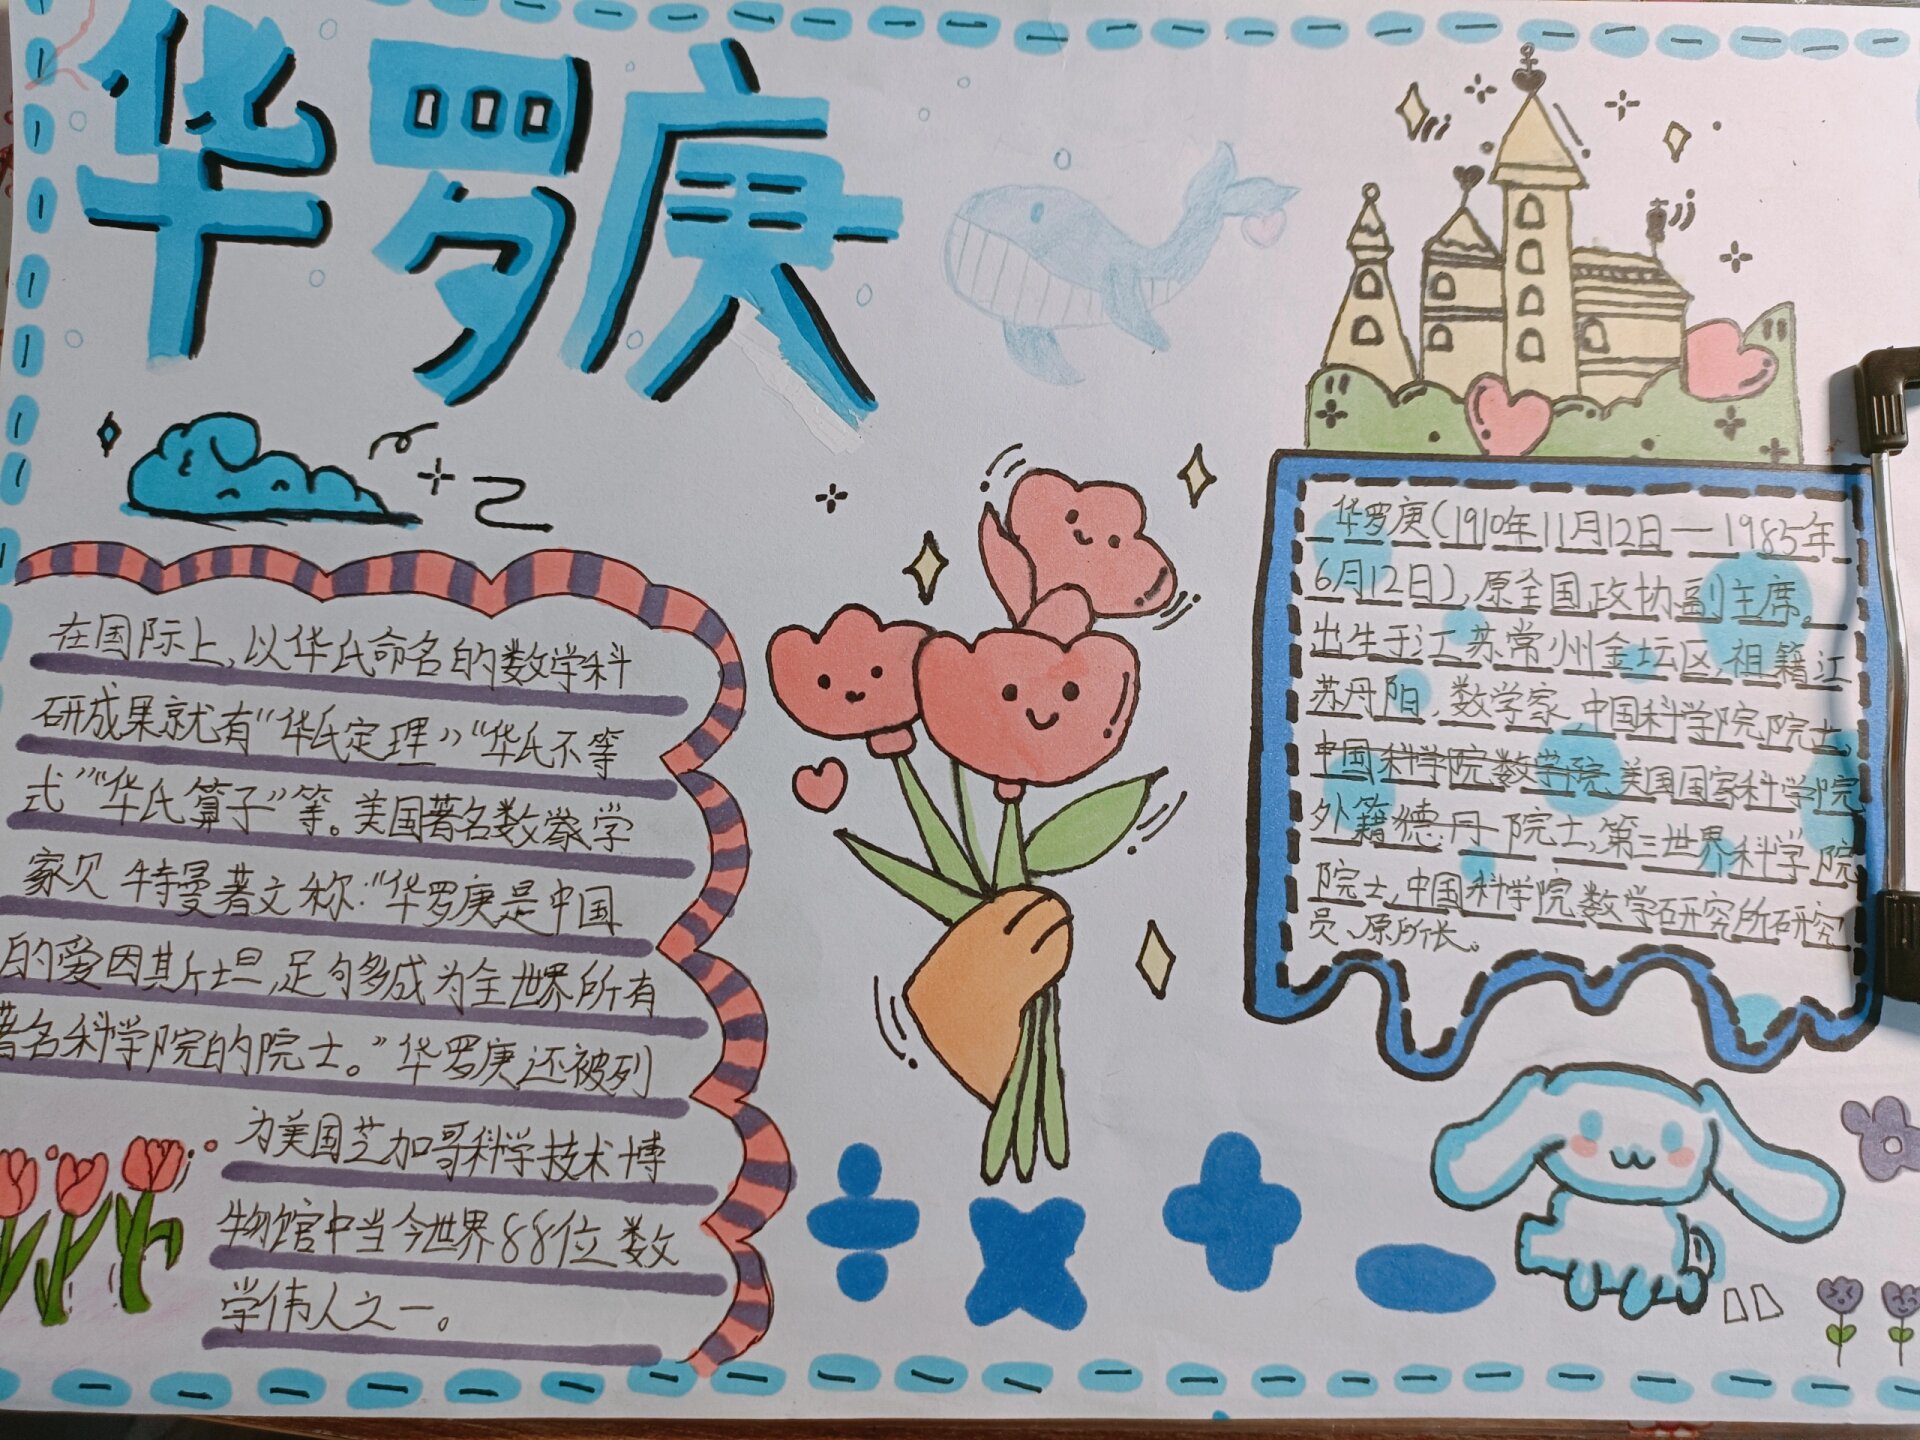 华罗庚
在国际上,以华氏命名的数学科
研成果就有“华氏定理”“华氏不等
式”“华氏算子”等。美国著名数学
家贝特曼著文称:“华罗庚是中国
的爱因斯坦,足够多成为全世界所有
著名科学院的院士。”华罗庚还被列
为美国芝加哥科学技术博
物馆中当今世界88位数
学伟人之一。
华罗庚(1910年11月12日一1985年
6月12日),原全国政协副主席。
出生于江苏常州金坛区,祖籍江
苏丹阳,数学家,中国科学院院士,
中国科学院数学院美国国家科学院
外籍德丹院士,第三世界科学院
院士,中国科学院数学研究所研究
员、原所长。
÷ × + −